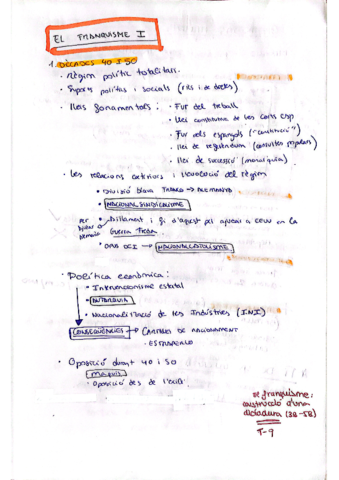 EL FRANQUISME I
1. DÈCADES 40 I 50
· Règim polític totalitari.
· Suports polítics i socials (rics i de dretes)
· Lleis fonamentals: · Fur del treball
· Llei constitutiva de les Corts Esp
· Fur dels espanyols ("constitució")
· Llei de referèndum (consultes populars)
· Llei de successió (monarquia)
· Les relacions exteriors i l'evolució del règim
· Divisió blava → ALEMANYA
· NACIONAL SINDICALISME
· Aïllament i fi d'aquest per ajudar a EEUU en la
Guerra Freda.
→ NACIONALCATOLICISME
· Política econòmica:
· Intervencionisme estatal
· AUTARQUIA
· Nacionalització de les Indústries (INI)
CONSEQÜÈNCIES → CARTILLES DE RACIONAMENT
· ESTRAPERLO
· Oposició durant 40 i 50
MAQUIS
· Oposició des de l'exili
El franquisme:
construcció d'una
dictadura (39-59)
T-9